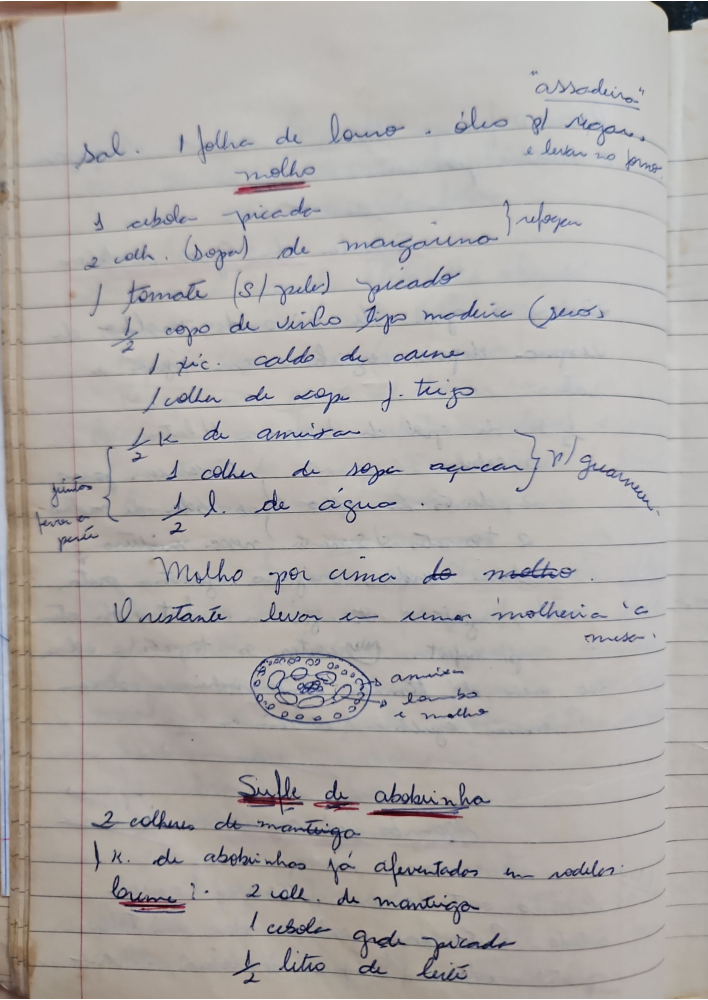 "assadeira"
Sal. 1 folha de louro. óleo p/ regar,
e levar no forno.
molho
1 cebola picada
2 colh. (sopa) de margarina } refogar
1 tomate (s/ pele) picado
1/2 copo de vinho tipo madeira (seco)
1 xic. caldo de carne
1 colher de sopa f. trigo
1/2 K de ameixa
1 colher de sopa açucar } p/ guarnecer.
1/2 l. de água.
juntos
ferver a
parte
Molho por cima do molho.
O restante levar em uma molheira a
mesa.
ameixa
lombo
e molho
Sufle de abobrinha
2 colheres de manteiga
1 K. de abobrinhas já afeventadas em rodelas.
Creme: 2 colh. de manteiga
1 cebola gde picada
1/2 litro de leite